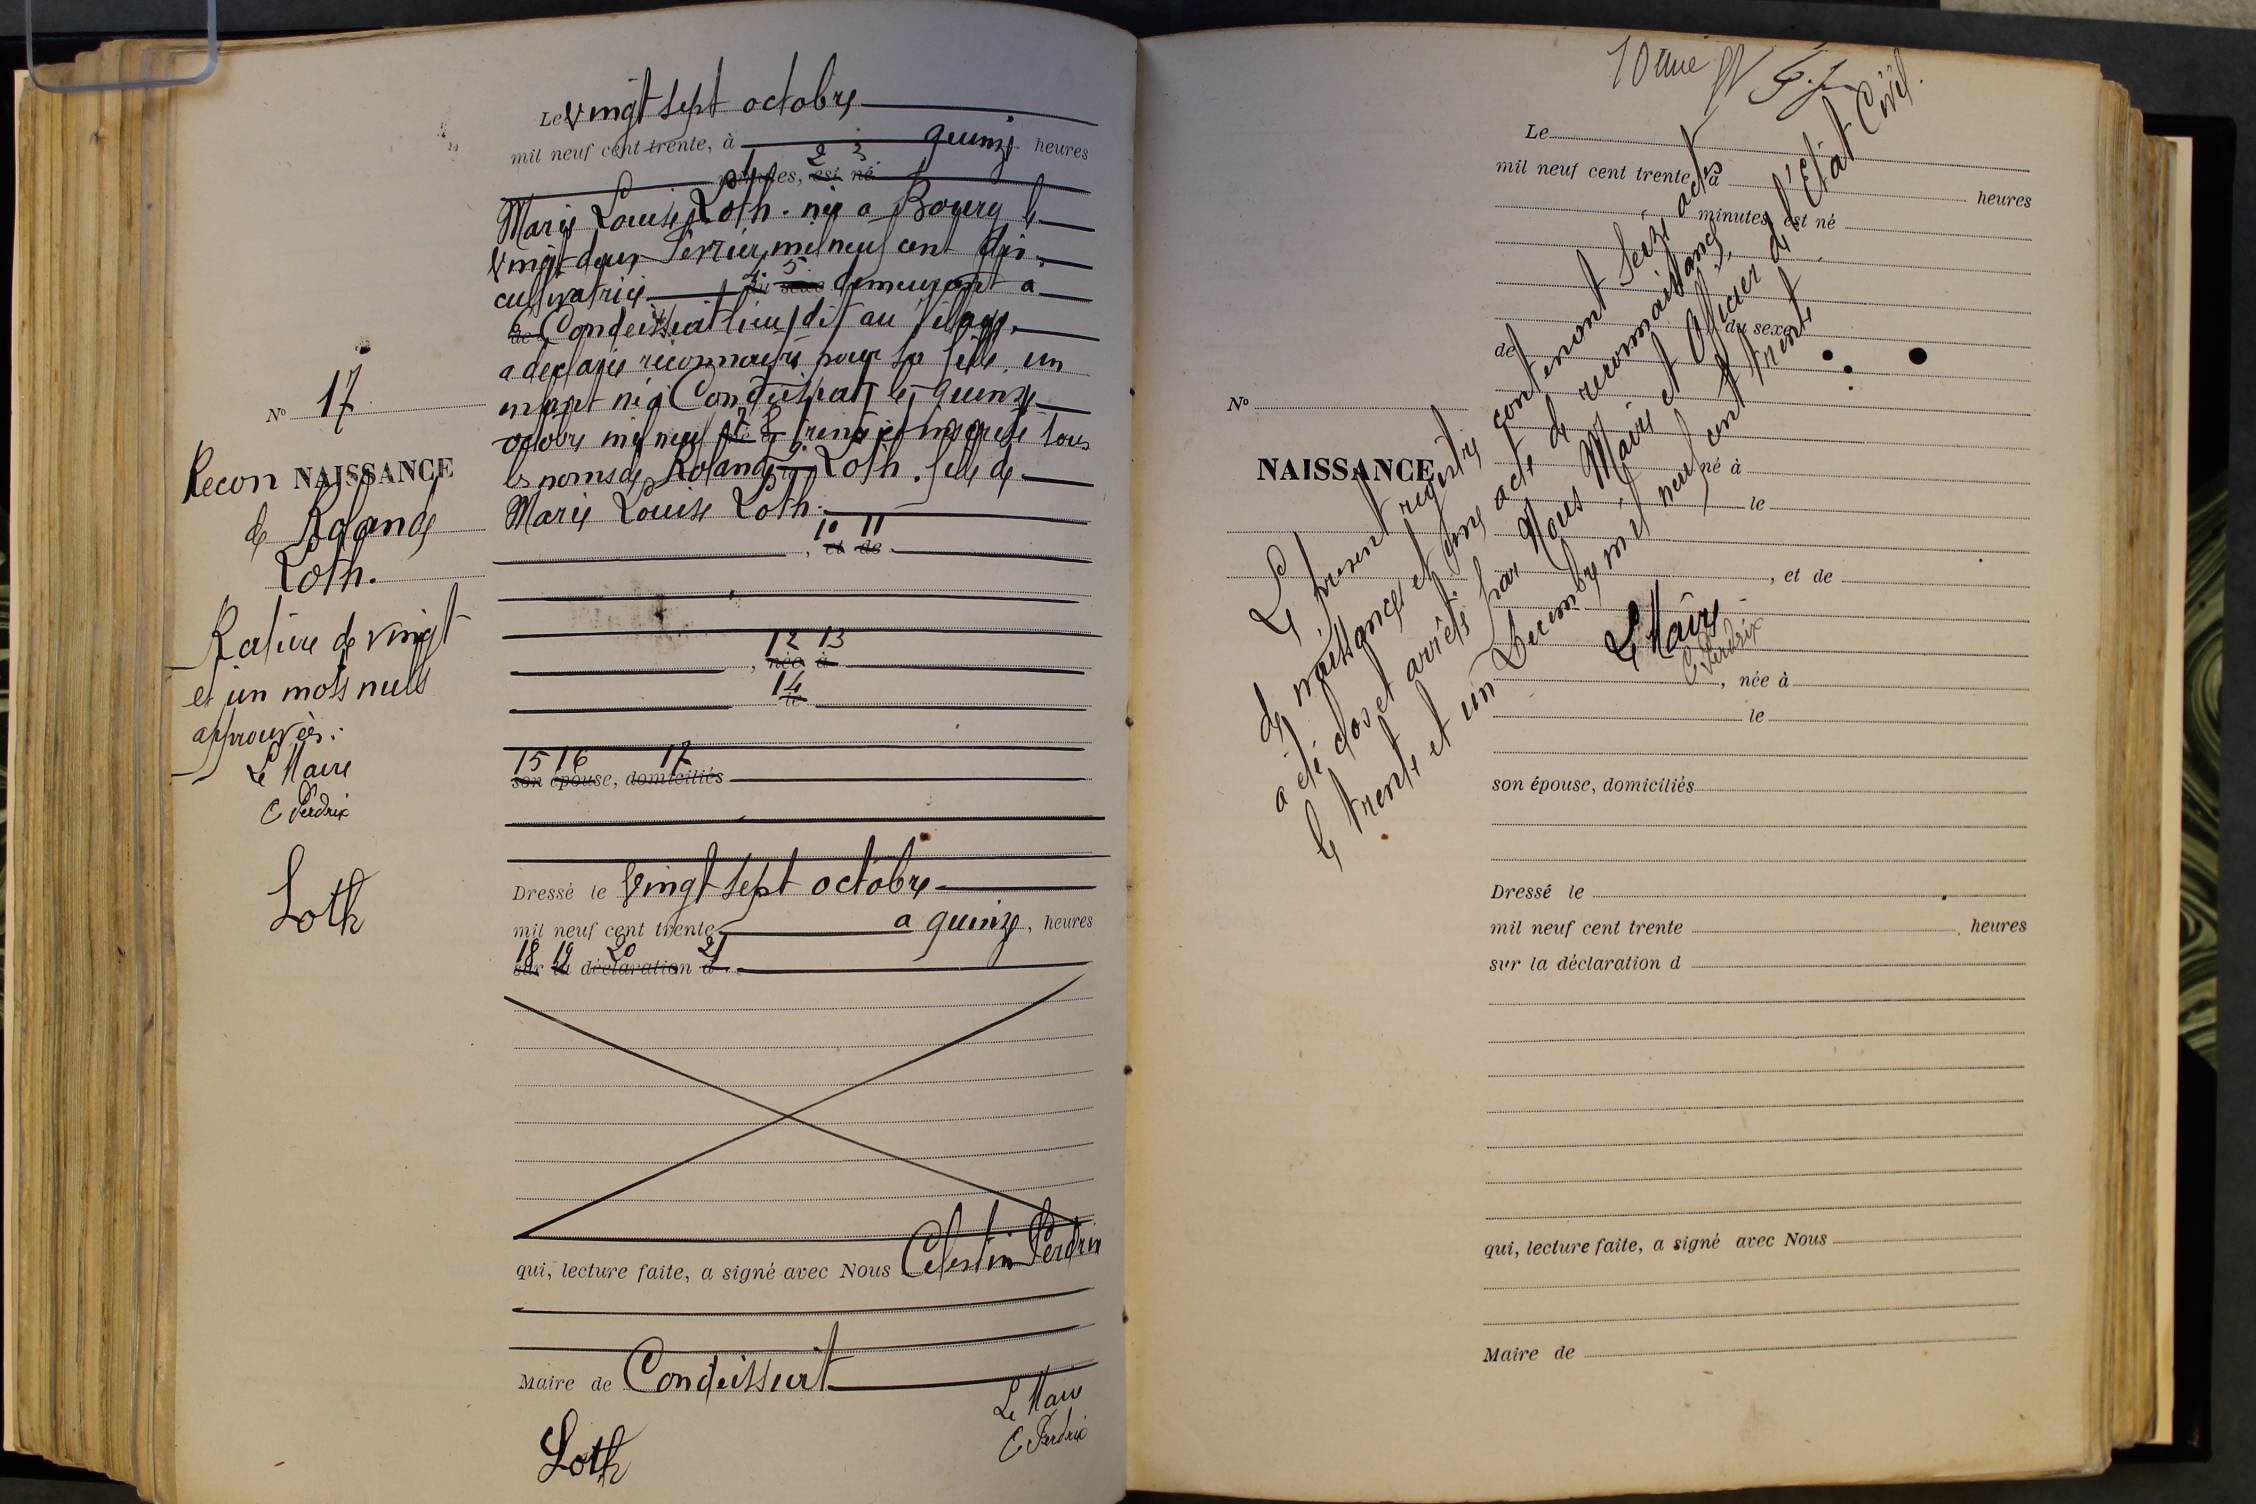 Le vingt sept octobre
mil neuf cent trente, à quinze heures
1 2 3
minutes, est né
Marie Louise Loth. née a Bouerg le
vingt deux Février mil neuf cent dix,
4 5
cultivatrice du sexe demeurant a
6
de Condeissiat lieu dit au Village,
a déclaré reconnaitre pour sa fille, un
enfant né a Condeissiat le quinze
7 8
octobre mil neuf cent trente et inscrite sous
9
les noms de Rolande Loth. fille de
Marie Louise Loth.
10 11
, et de
12 13
, née à
14
le
15 16 17
son épouse, domiciliés
Dressé le vingt sept octobre
mil neuf cent trente a quinze, heures
18 19 20 21
sur la déclaration d
qui, lecture faite, a signé avec Nous Celestin Perdrix
Maire de Condeissiat
Le Maire
C Perdrix
Loth
N° 17
Recon NAISSANCE
de Rolande
Loth.
Rature de vingt
et un mots nuls
approuvés:
Le Maire
C Perdrix
Loth
10 eme
Le
mil neuf cent trente, à heures
minutes, est né
du sexe
de
N°
NAISSANCE
né à
le
, et de
, née à
le
son épouse, domiciliés
Dressé le
mil neuf cent trente heures
sur la déclaration d
qui, lecture faite, a signé avec Nous
Maire de
Le present registre contenant seize actes
de naissances et une acte de reconnaissance,
a été clos et arrêté par Nous Maire et Officier de l'Etat Civil.
le trente et un Decembre mil neuf cent trente
Le Maire
C Perdrix